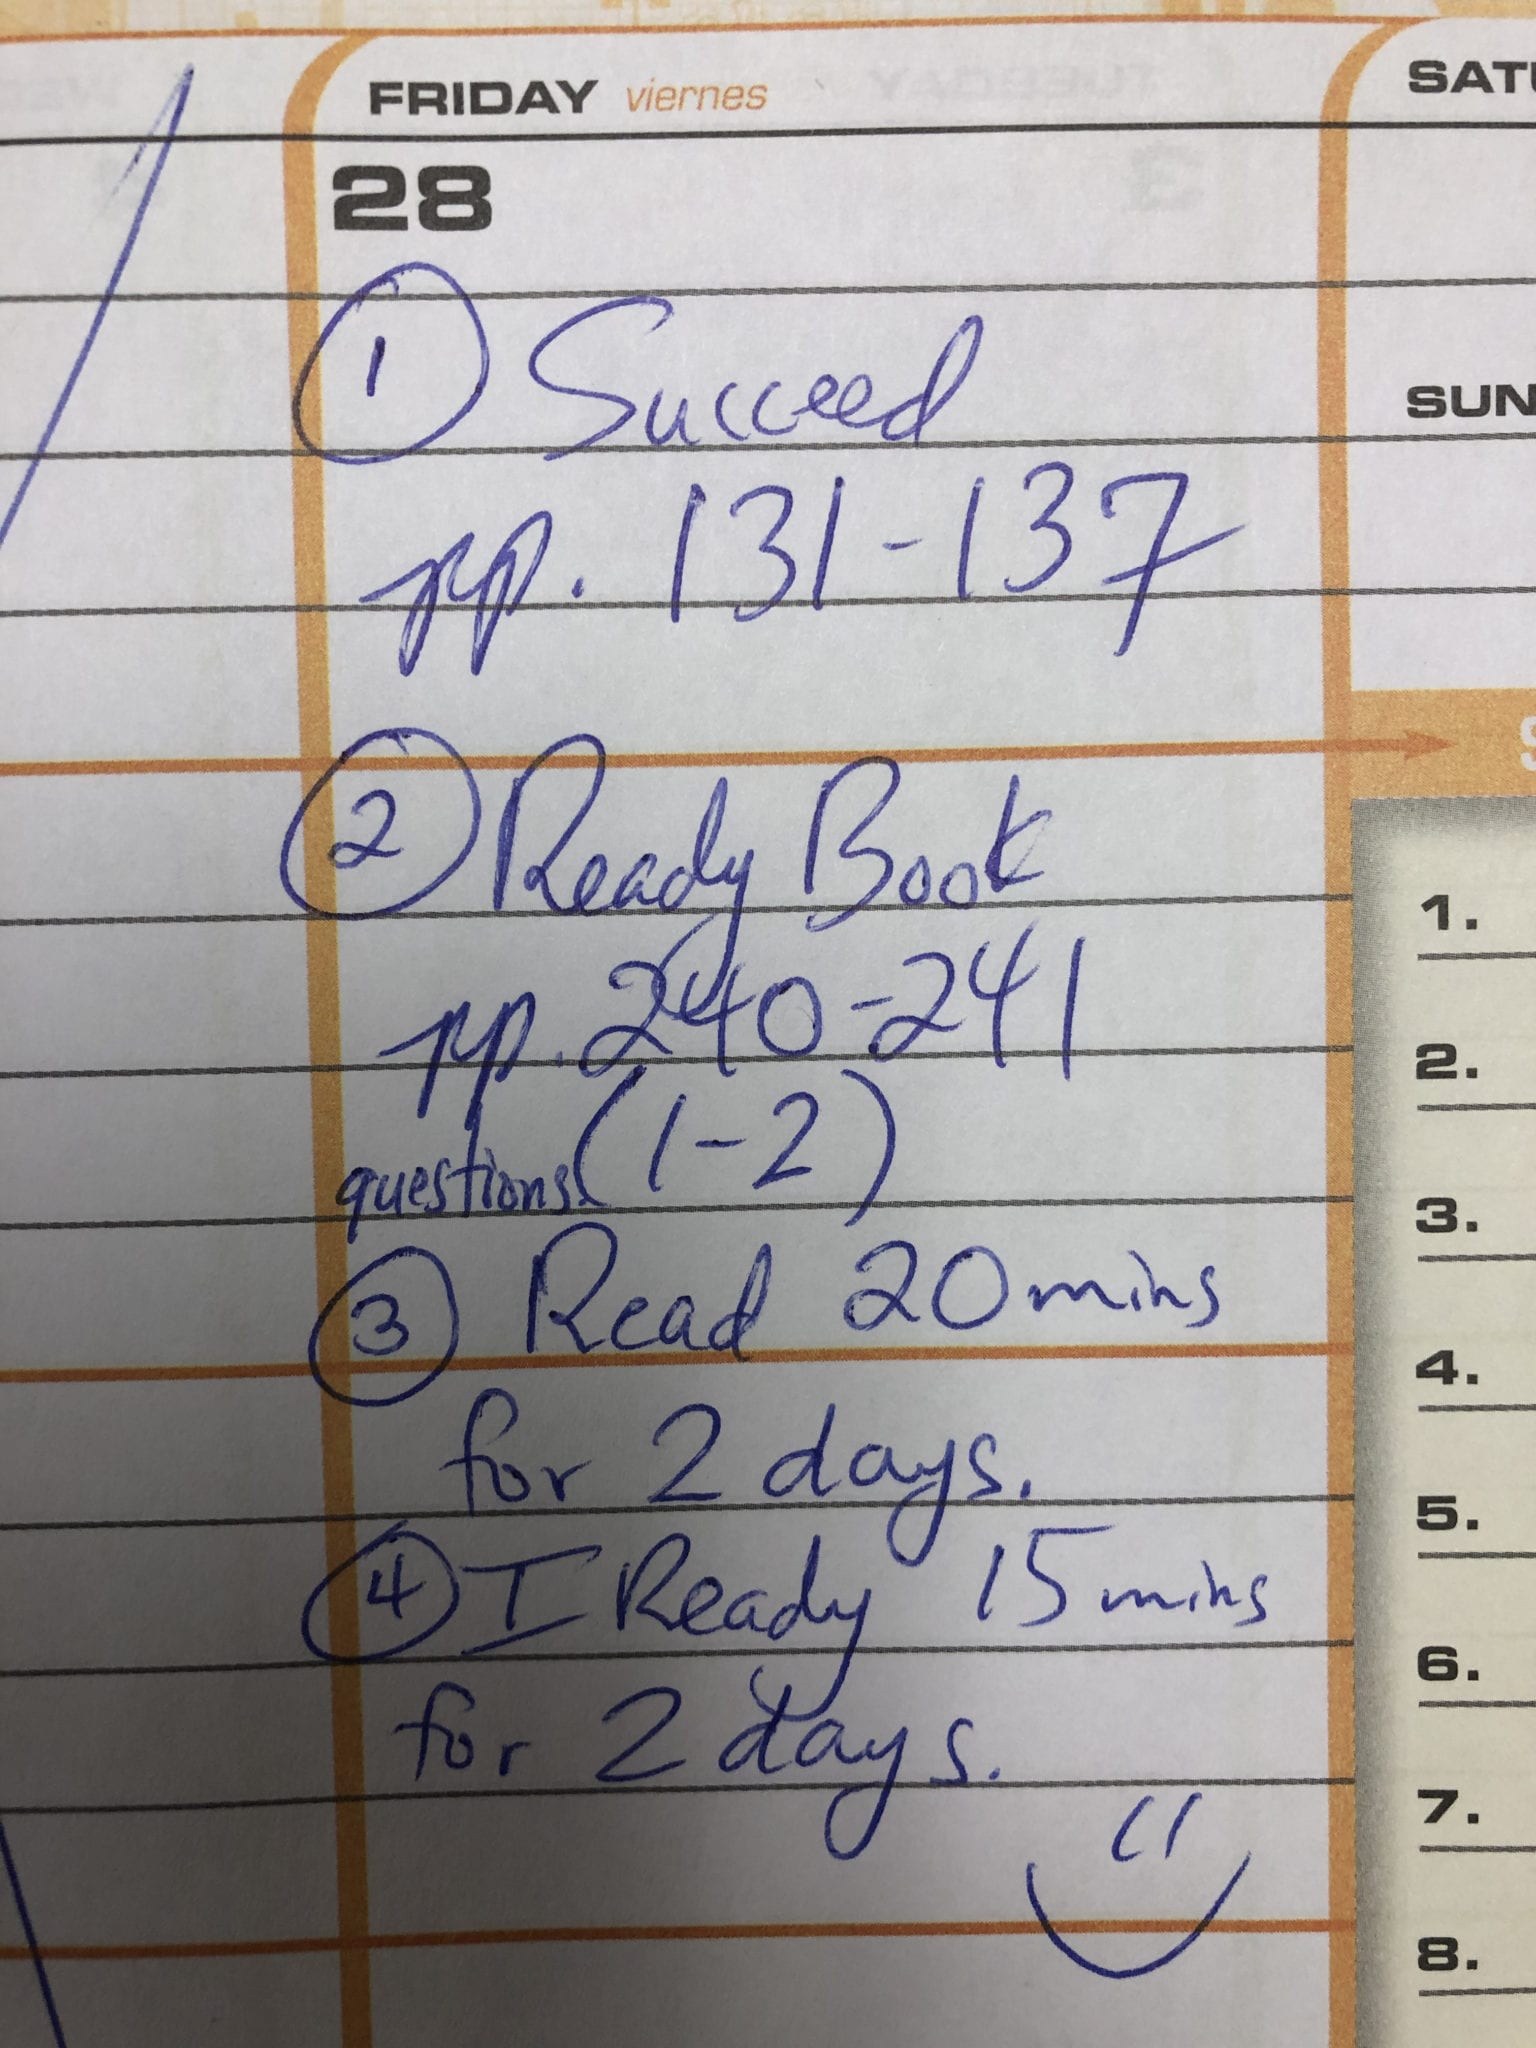 FRIDAY viernes
28
① Succeed
pp. 131-137
② Ready Book
pp. 240-241
questions (1-2)
③ Read 20 mins
for 2 days.
④ I Ready 15 mins
for 2 days.
SATU
SUN
S
1.
2.
3.
4.
5.
6.
7.
8.